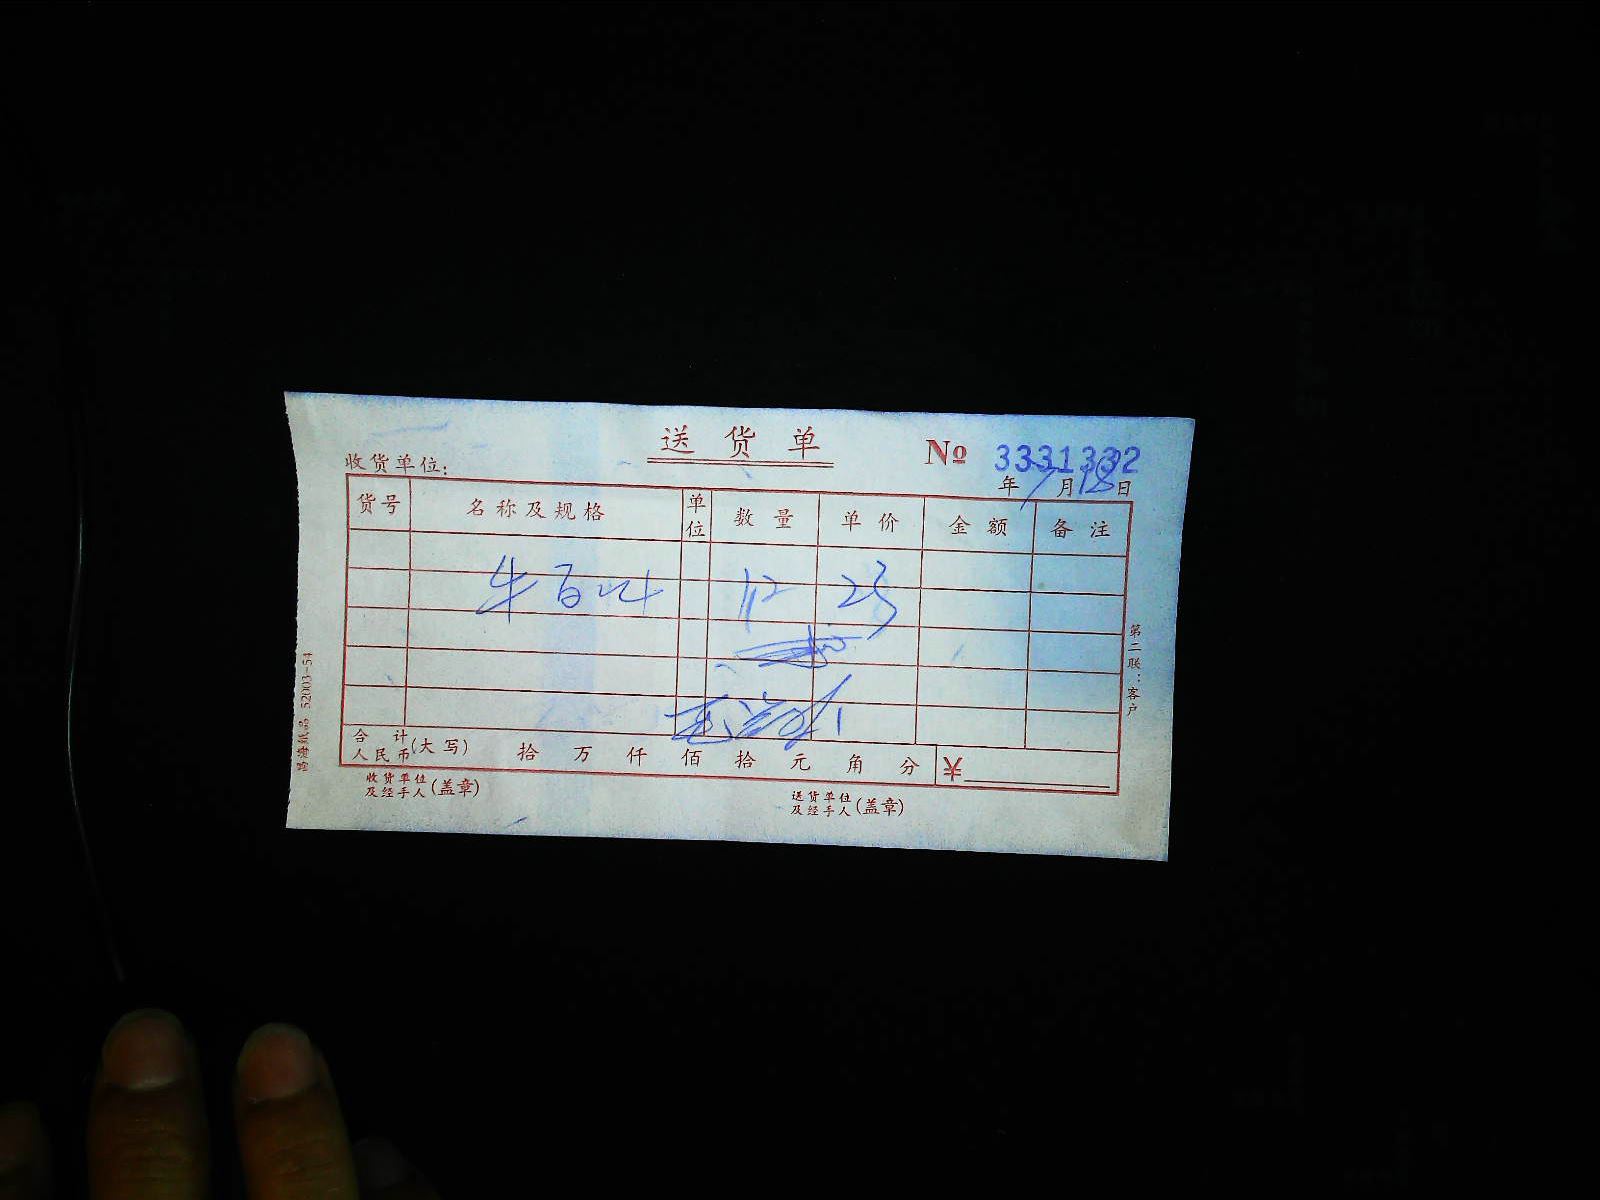 送货单
No 3331332
收货单位:
年7月18日
货号 名称及规格 单位 数量 单价 金额 备注
牛百叶 112 25
合计人民币(大写) 拾 万 仟 佰 拾 元 角 分 ¥
收货单位及经手人(盖章)
送货单位及经手人(盖章)
第二联:客户
52003-54